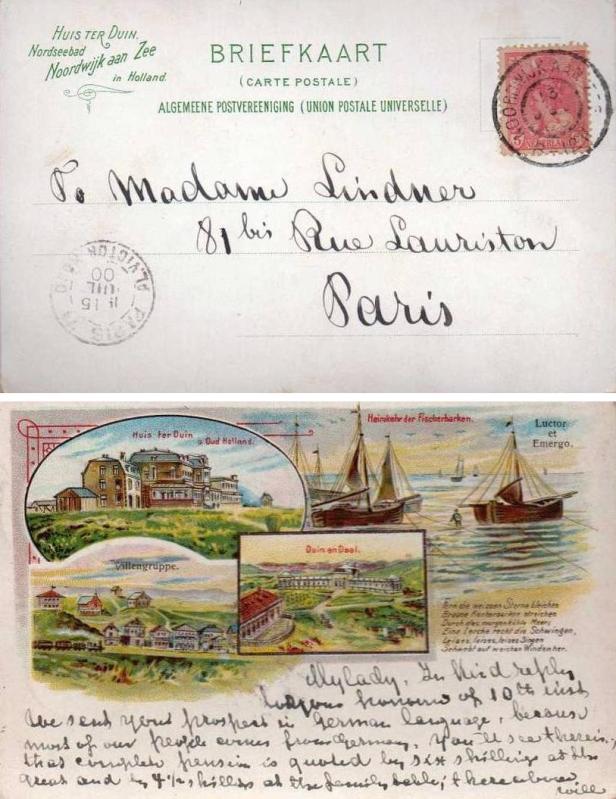 HUIS TER DUIN.
Nordseebad
Noordwijk aan Zee
in Holland.
BRIEFKAART
(CARTE POSTALE)
ALGEMEENE POSTVEREENIGING (UNION POSTALE UNIVERSELLE)
NOORDWIJK AAN
NEDERLAND
To Madame Lindner
81 bis Rue Lauriston
Paris
PARIS
15
JUIL
00
PL. VICTOR HUGO
Huis ter Duin
u. Oud Holland.
Heimkehr der Fischerbarken.
Luctor
et
Emergo.
Villengruppe.
Duin en Daal.
Fern die weissen Sterne bleichen
Braune
Durch das morgenkühle Meer;
Eine Lerche reckt die Schwingen,
Leises, leises, leises Singen
Schwebt auf weichen Winden her.
Mylady, In kind reply
to your honour of 10th inst
we sent your prospect in German language, because
most of our people comes from Germany. You'll see therein,
that complete pension is quoted by six shillings at the
great and by 4½ shillings at the family table;
will